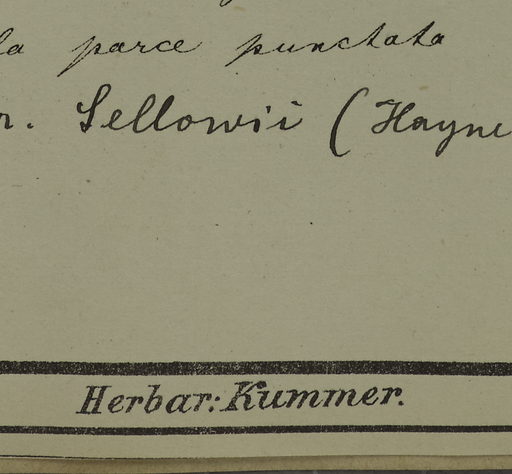 parce punctata
Sellowii (Hayne
Herbar: Kummer.